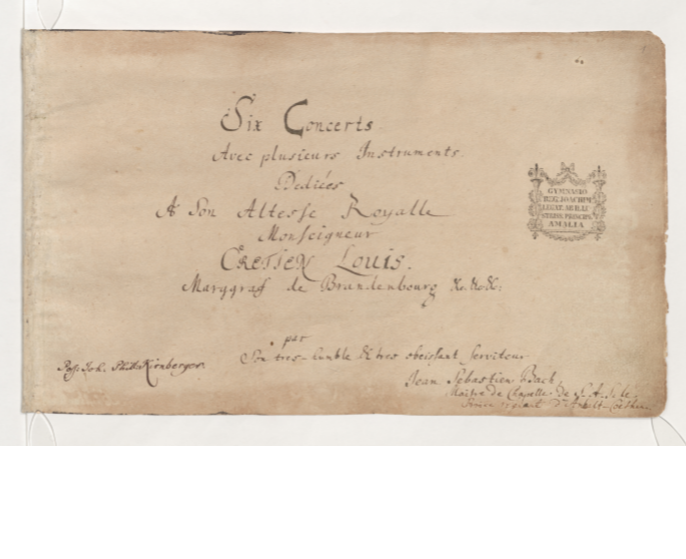 Six Concerts
Avec plusieurs Instruments.
Dediées
A Son Altesse Royalle
Monseigneur
CRETIEN Louis.
Marggraf de Brandenbourg &c. &c. &c:
par
Son tres-humble & tres obeissant serviteur
Jean Sebastien Bach,
Maitre de Chapelle de S. A. S. le
Prince regnant D'Anhalt-Coethen.
Poss: Joh. Phil. Kirnberger.
GYMNASIO
REG. IOACHIM.
LEGAT. AB ILLU
STRISS. PRINCIPE
AMALIA